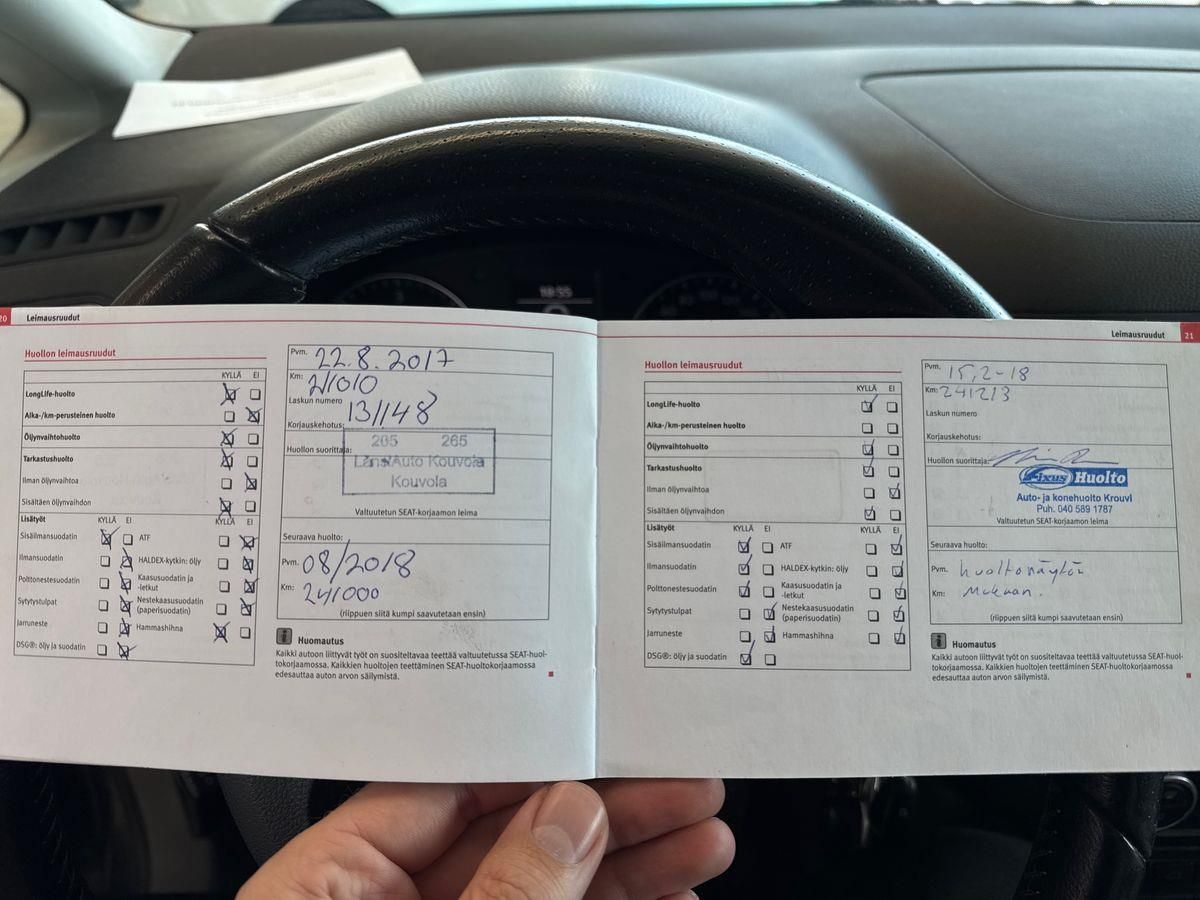 18:55
20 Leimausruudut
Huollon leimausruudut
KYLLÄ EI
LongLife-huolto
Aika-/km-perusteinen huolto
Öljynvaihtohuolto
Tarkastushuolto
Ilman öljynvaihtoa
Sisältäen öljynvaihdon
Lisätyöt KYLLÄ EI KYLLÄ EI
Sisäilmansuodatin ATF
Ilmansuodatin HALDEX-kytkin: öljy
Polttonestesuodatin Kaasusuodatin ja
-letkut
Sytytystulpat Nestekaasusuodatin
(paperisuodatin)
Jarruneste Hammashihna
DSG®: öljy ja suodatin
Pvm. 22.8.2017
Km: 211010
Laskun numero 131148
Korjauskehotus:
Huollon suorittaja:
205 265
LänsiAuto Kouvola
Kouvola
Valtuutetun SEAT-korjaamon leima
Seuraava huolto:
Pvm. 08/2018
Km: 241000
(riippuen siitä kumpi saavutetaan ensin)
Huomautus
Kaikki autoon liittyvät työt on suositeltavaa teettää valtuutetussa SEAT-huol-
tokorjaamossa. Kaikkien huoltojen teettäminen SEAT-huoltokorjaamossa
edesauttaa auton arvon säilymistä.
Leimausruudut 21
Huollon leimausruudut
KYLLÄ EI
LongLife-huolto
Aika-/km-perusteinen huolto
Öljynvaihtohuolto
Tarkastushuolto
Ilman öljynvaihtoa
Sisältäen öljynvaihdon
Lisätyöt KYLLÄ EI KYLLÄ EI
Sisäilmansuodatin ATF
Ilmansuodatin HALDEX-kytkin: öljy
Polttonestesuodatin Kaasusuodatin ja
-letkut
Sytytystulpat Nestekaasusuodatin
(paperisuodatin)
Jarruneste Hammashihna
DSG®: öljy ja suodatin
Pvm. 15,2-18
Km: 241213
Laskun numero
Korjauskehotus:
Huollon suorittaja:
Fixus Huolto
Auto- ja konehuolto Krouvi
Puh. 040 589 1787
Valtuutetun SEAT-korjaamon leima
Seuraava huolto:
Pvm. huoltonäytön
Km: mukaan.
(riippuen siitä kumpi saavutetaan ensin)
Huomautus
Kaikki autoon liittyvät työt on suositeltavaa teettää valtuutetussa SEAT-huol-
tokorjaamossa. Kaikkien huoltojen teettäminen SEAT-huoltokorjaamossa
edesauttaa auton arvon säilymistä.